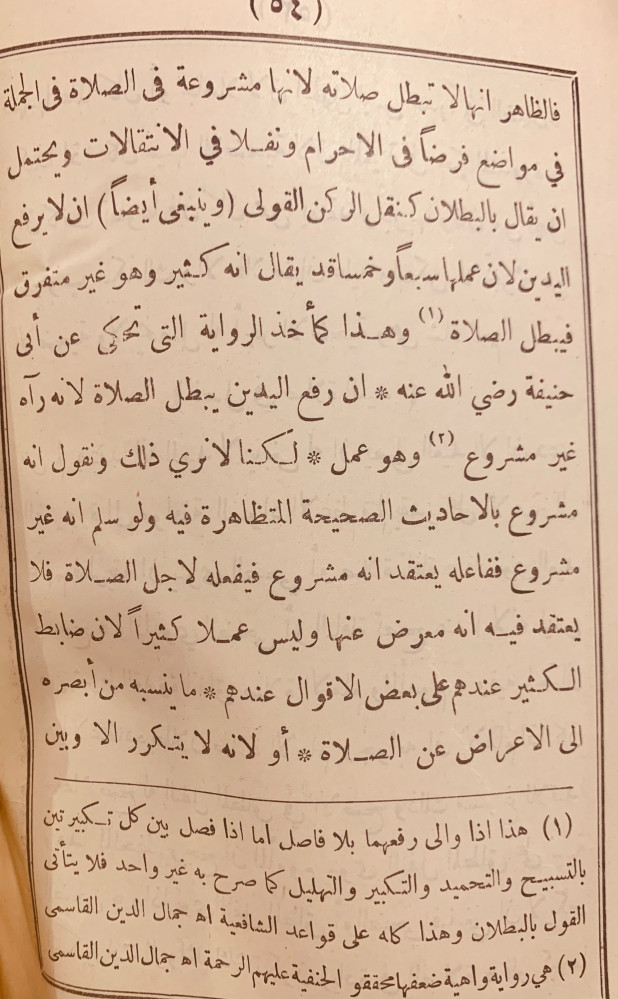 (٥٤)
فالظاهر انها لا تبطل صلاته لانها مشروعة فى الصلاة فى الجملة
في مواضع فرضاً فى الاحرام ونفلا في الانتقالات ويحتمل
ان يقال بالبطلان كنقل الركن القولى (وينبغى أيضاً) ان لا يرفع
اليدين لان عملها سبعاً وخمسا قد يقال انه كثير وهو غير متفرق
فيبطل الصلاة (١) وهذا كمأخذ الرواية التى تحكى عن أبى
حنيفة رضي الله عنه * ان رفع اليدين يبطل الصلاة لانه رآه
غير مشروع (٢) وهو عمل * لكنا لا نري ذلك ونقول انه
مشروع بالاحاديث الصحيحة المتظاهرة فيه ولو سلم انه غير
مشروع ففاعله يعتقد انه مشروع فيفعله لاجل الصلاة فلا
يعتقد فيه انه معرض عنها وليس عملا كثيراً لان ضابط
الكثير عندهم على بعض الاقوال عندهم * ما ينسبه من أبصره
الى الاعراض عن الصلاة * أو لانه لا يتكرر الا وبين
(١) هذا اذا والى رفعهما بلا فاصل اما اذا فصل بين كل تكبيرتين
بالتسبيح والتحميد والتكبير والتهليل كما صرح به غير واحد فلا يتأتى
القول بالبطلان وهذا كله على قواعد الشافعية اه جمال الدين القاسمى
(٢) هي رواية واهية ضعفها محققو الحنفية عليهم الرحمة اه جمال الدين القاسمى